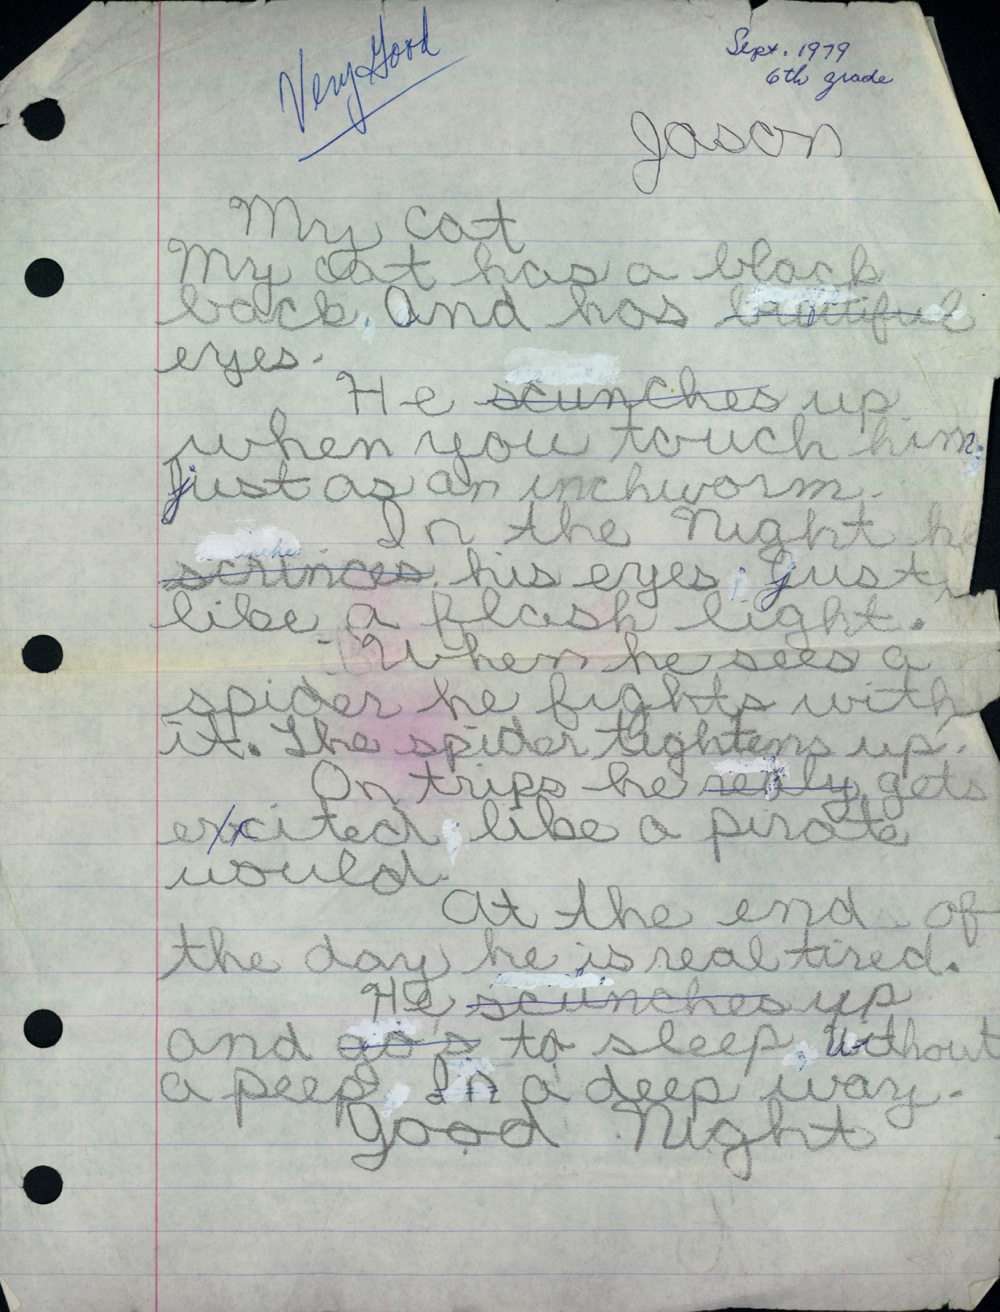 Very Good
Sept. 1979
6th grade
Jason
My Cat
My cat has a black
back. And has
eyes.
He scunches up
when you touch him.
Just as an inchworm.
In the Night he
scrinces his eyes. Just
like a flash light.
When he sees a
spider he fights with
it. The spider tightens up.
On trips he realy gets
excited, like a pirate
would.
At the end of
the day he is real tired.
He scunches up
and go's to sleep, Without
a peep. In a deep way.
Good Night